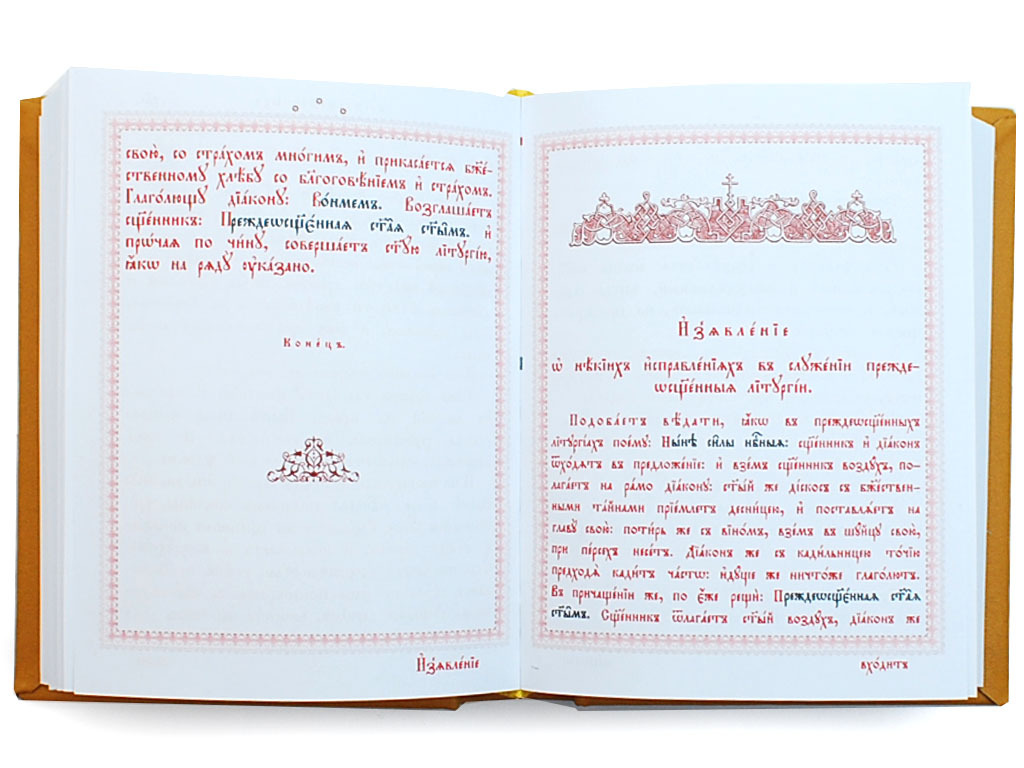 свою̀, со стра́хомъ мно́гимъ, и҆ прикаса́етсѧ бж҃е-
ственному хлѣ́бу со бл҃гоговѣ́нїемъ и҆ стра́хомъ.
Глаго́лющу дїа́кону: Во́нмемъ. Возглаша́етъ
сщ҃е́нникъ: Преждеѡсщ҃е́нная ст҃а̑ѧ ст҃ы̑мъ. и҆
прѡ́чаѧ по чи́ну, соверша́етъ ст҃у́ю лїтургі́ю,
ꙗ҆́кѡ на рѧдꙋ̀ ᲂу҆ка́зано.
Коне́цъ.
И҆з̾ѧвле́нїе
И҆з̾ѧвле́нїе
ѡ҆ нѣ́кїихъ и҆справле́нїѧхъ въ слꙋже́нїи прежде-
ѡсщ҃е́нныѧ лїтꙋргі́и.
Подоба́етъ вѣ́дати, ꙗ҆́кѡ въ преждеѡсщ҃е́нныхъ
лїтꙋргі́ахъ пое́мꙋ: Ны́нѣ си̑лы нбⷭ҇ныѧ: сщ҃е́нникъ и҆ дїа́конъ
ѿхо́дѧтъ въ предложе́нїе: и҆ взе́мъ сщ҃е́нникъ во́здꙋхъ, по-
лага́етъ на ра́мо дїа́конꙋ: ст҃ы́й же ді́скосъ съ бж҃е́ствен-
ными та́йнами прїе́млетъ десни́цею, и҆ поставлѧ́етъ на
главꙋ̀ свою̀: поти́рь же съ вїно́мъ, взе́мъ въ шꙋ́йцꙋ свою̀,
при пе́рсехъ несе́тъ. Дїа́конъ же съ кади́льницею то́чїю
предходѧ̀ кади́тъ ча́стѡ: и҆дꙋ́ще же ничто́же глаго́лютъ.
Въ причаще́нїи же, по є҆́же рещѝ: Преждеѡсщ҃е́нная ст҃а̑ѧ
ст҃ы̑мъ. Сщ҃е́нникъ ѿлага́етъ ст҃ы́й во́здꙋхъ, дїа́конъ же
вхо́дитъ